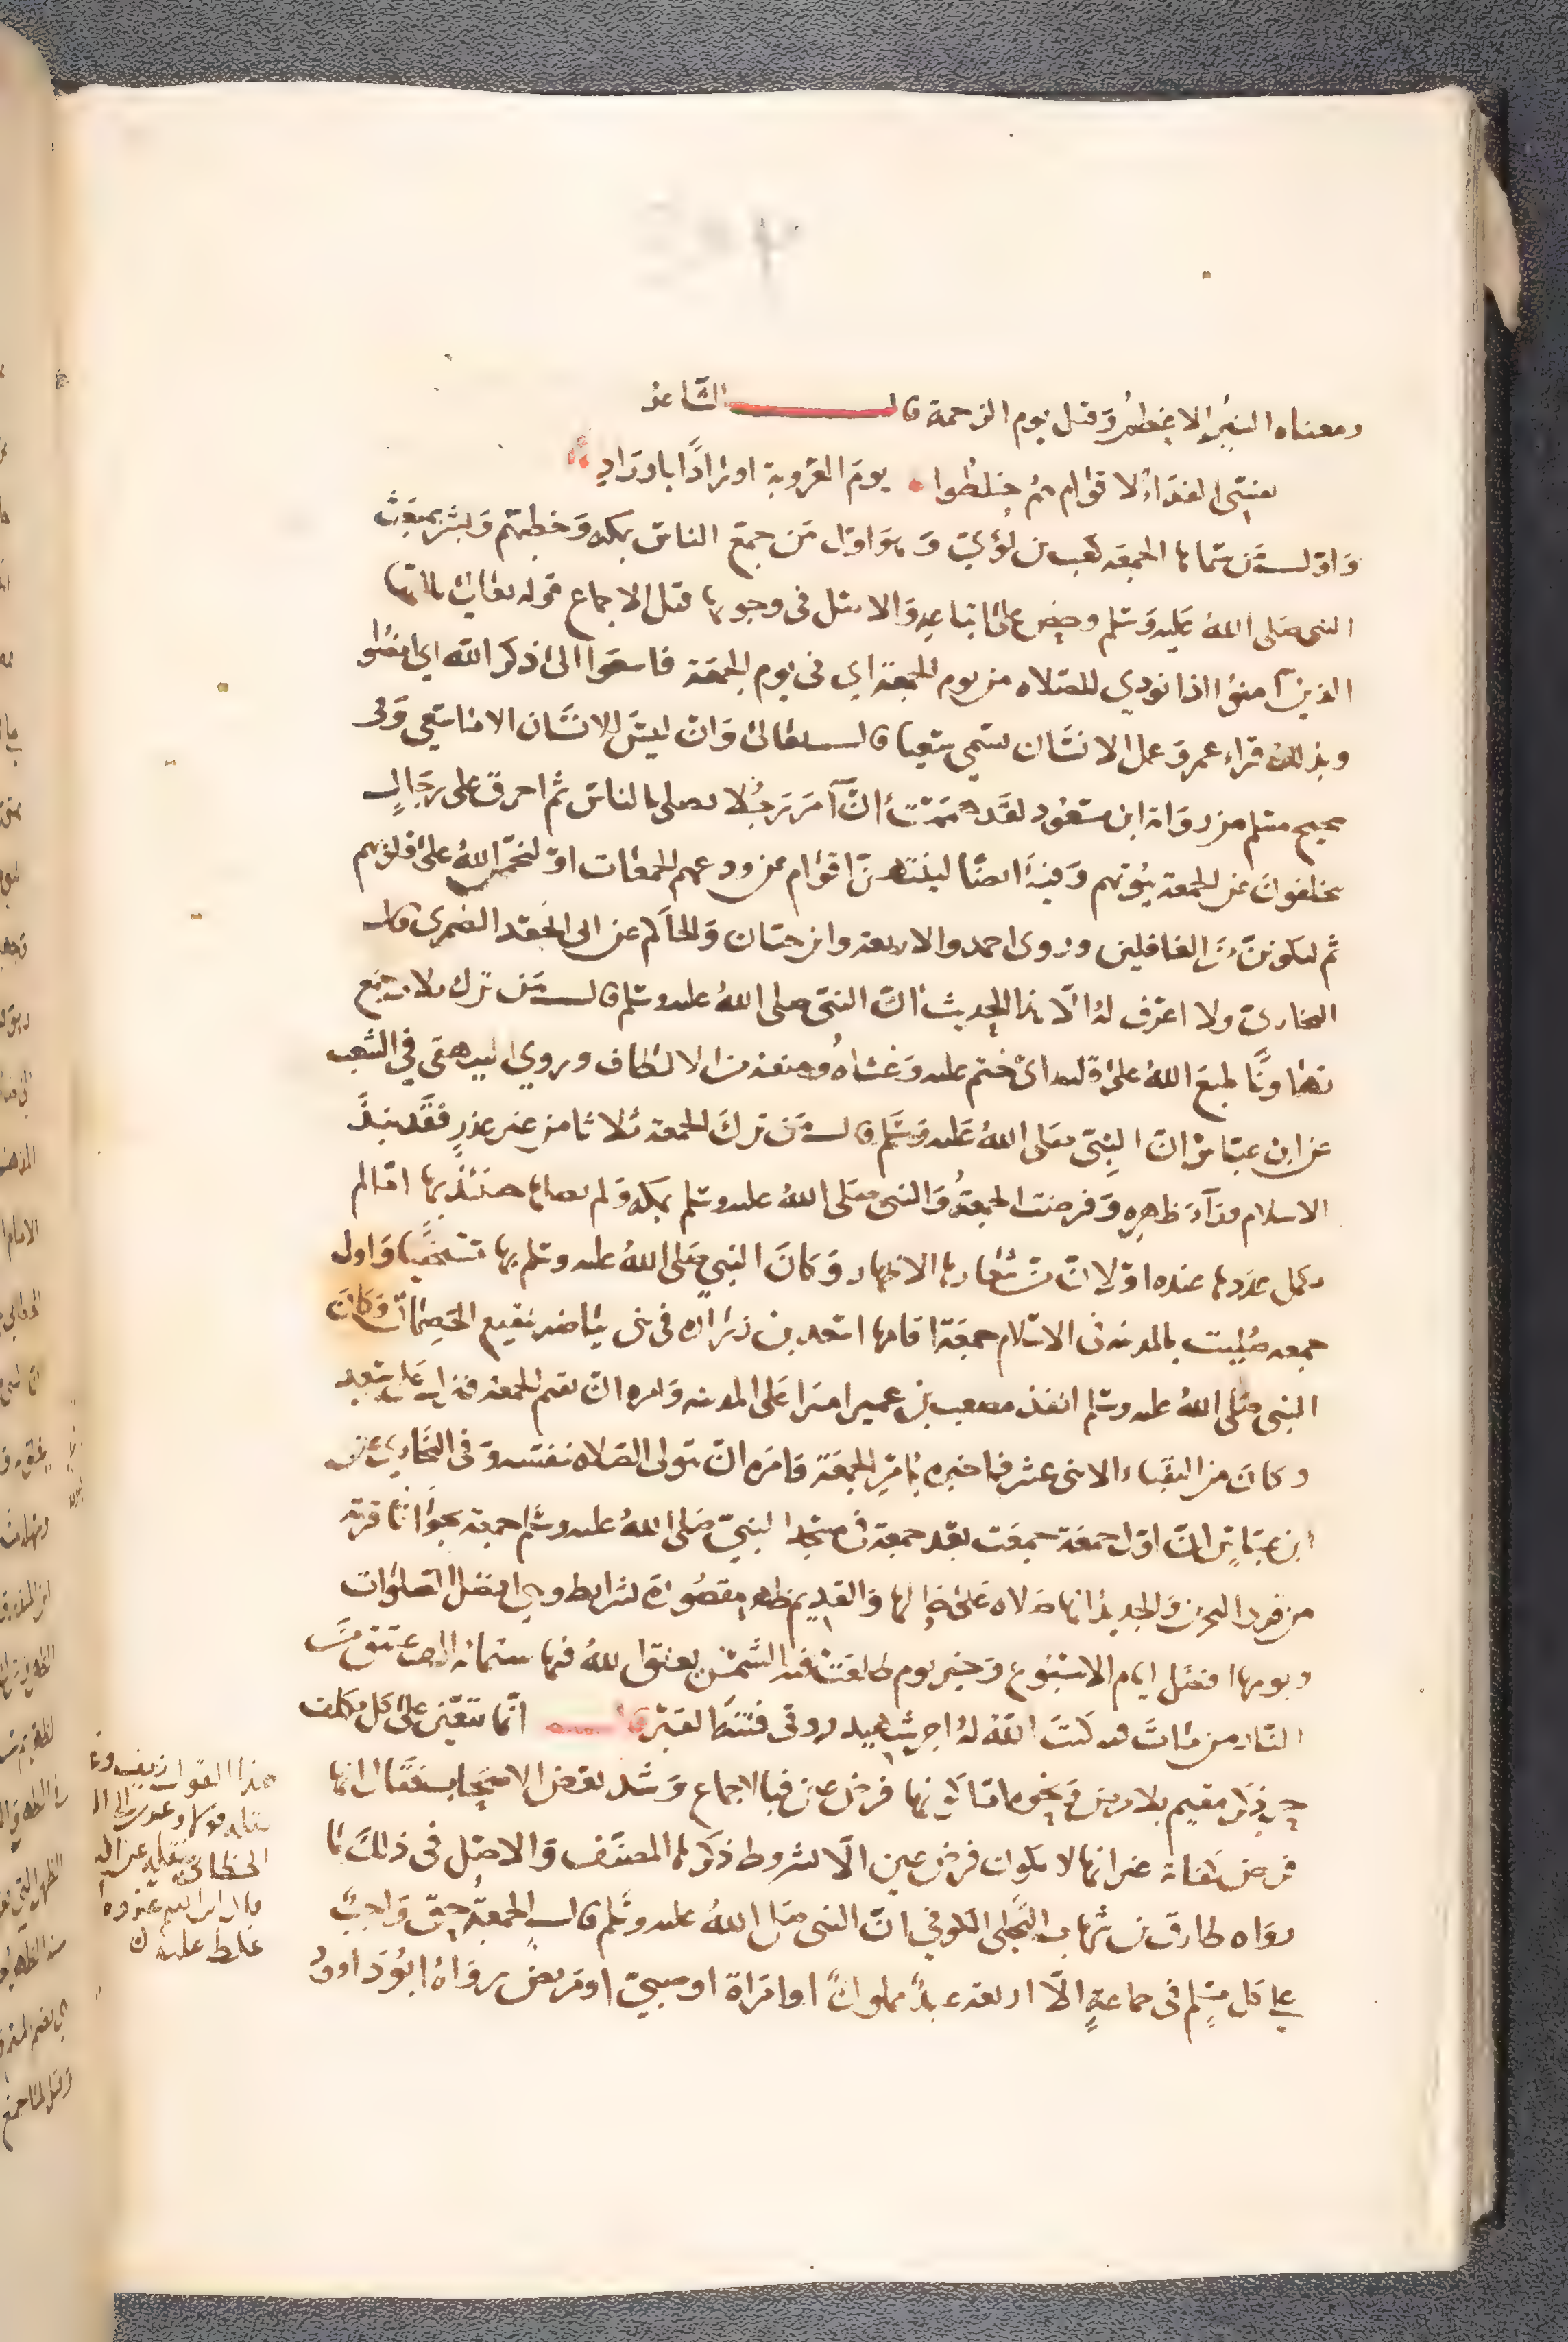 ومعناه البين الاعظم وقيل يوم الرحمة قال الشاعر
نفسي الفداء لاقوام هم خلطوا يوم العروبة اورادا باوراد
واول من سماها الجمعة كعب بن لؤي وهو اول من جمع الناس بمكة وخطبهم وبشر بمبعث
النبي صلى الله عليه وسلم وحض على اتباعه والاصل في وجوبها قبل الاجماع قوله تعالى ياايها
الذين آمنوا اذا نودي للصلاة من يوم الجمعة اي في يوم الجمعة فاسعوا الى ذكر الله اي امضوا
وبذلك قراء عمر وعمل الانسان يسمي سعيا قال تعالى وان ليس للانسان الا ما سعي وفي
صحيح مسلم من رواية ابن مسعود لقد هممت ان آمر رجلا يصلي بالناس ثم احرق على رجال
يتخلفون عن الجمعة بيوتهم وفيه ايضا لينتهين اقوام عن ودعهم الجمعات او ليختمن الله على قلوبهم
ثم ليكونن من الغافلين وروى احمد والاربعة وابن حبان والحاكم عن ابي الجعد الضمري قال
البخاري ولا اعرف له الا هذا الحديث ان النبي صلى الله عليه وسلم قال من ترك ثلاث جمع
تهاونا طبع الله على قلبه اي ختم عليه وغشاه ومنعه من الالطاف وروي البيهقي في الشعب
عن ابن عباس ان النبي صلى الله عليه وسلم قال من ترك الجمعة ثلاثا من غير عذر فقد نبذ
الاسلام وراء ظهره وفرضت الجمعة والنبي صلى الله عليه وسلم بمكة ولم يصلها حينئذ بها اما لم
يكمل عددها عنده او لان من شعارها الاظهار وكان النبي صلى الله عليه وسلم بها مستخفيا واول
جمعة صليت بالمدينة في الاسلام جمعة اقامها اسعد بن زرارة في بني بياضة بنقيع الخضمات وكان
النبي صلى الله عليه وسلم انفذ مصعب بن عمير اميرا على المدينة وامره ان يقيم الجمعة فنزل على سعد
وكان من النقباء الاثنى عشر فاخبره بامر الجمعة فامره ان يتولى الصلاة بنفسه وفي البخاري عن
ابن عباس ان اول جمعة جمعت بعد جمعة في مسجد النبي صلى الله عليه وسلم جمعة بجواثا قرية
من قرى البحرين والجديد انها صلاة على حيالها والقديم ظهر مقصورة بشرايط وهي افضل الصلوات
ويومها افضل ايام الاسبوع وخير يوم طلعت فيه الشمس يعتق الله فيها ستمائة الف عتيق من
النار من مات فيه كتب الله له اجر شهيد ووقى فتنة القبر قال انما تتعين على كل مكلف
حر ذكر مقيم بلا مرض ونحوه اما كونها فرض عين فبالاجماع وشذ بعض الاصحاب فقال انها
فرض كفاية غير انها لا يكون فرض عين الا بشروط ذكرها المصنف والاصل في ذلك ما
رواه طارق بن شهاب البجلي الكوفي ان النبي صلى الله عليه وسلم قال الجمعة حق واجب
على كل مسلم في جماعة الا اربعة عبد مملوك او امراة او صبي او مريض رواه ابو داود
هذا القول
الخطابي
غلط عليه